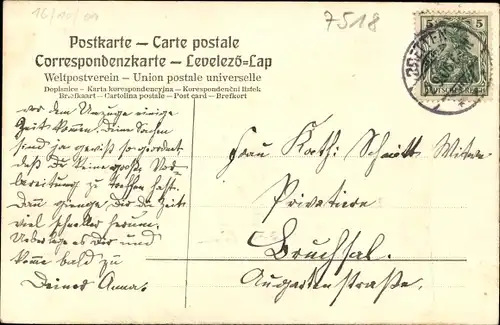 16/10/09
7518
Postkarte — Carte postale
Correspondenzkarte — Levelező-Lap
Weltpostverein — Union postale universelle
Dopisnice — Karta korespondencyjna — Korespondenční lístek
Brefkaart — Cartolina postale — Post card — Brefkort
5 5
DEUTSCHES REICH
vor dem Umzuge einige
Zeit kommen. Deine Sachen
sind ja gewiß so geordnet
daß Du keine große Vor-
bereitung zu treffen hast.
Dann gienge Dir die Zeit
viel schneller herum.
Ueberlege es Dir und
komme bald zu
Deiner Anna.
Frau Kathi Schmitt Witwe
Privatiere
Bruchsal.
Augartenstraße.